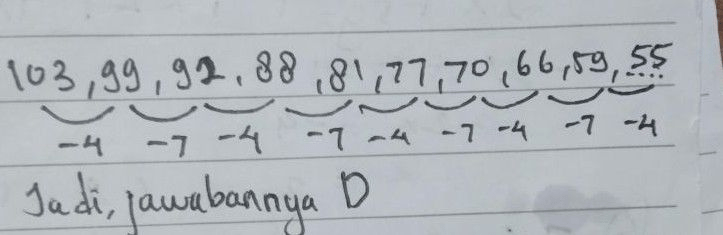 103, 99, 92, 88, 81, 77, 70, 66, 59, 55
-4 -7 -4 -7 -4 -7 -4 -7 -4
Jadi, jawabannya D